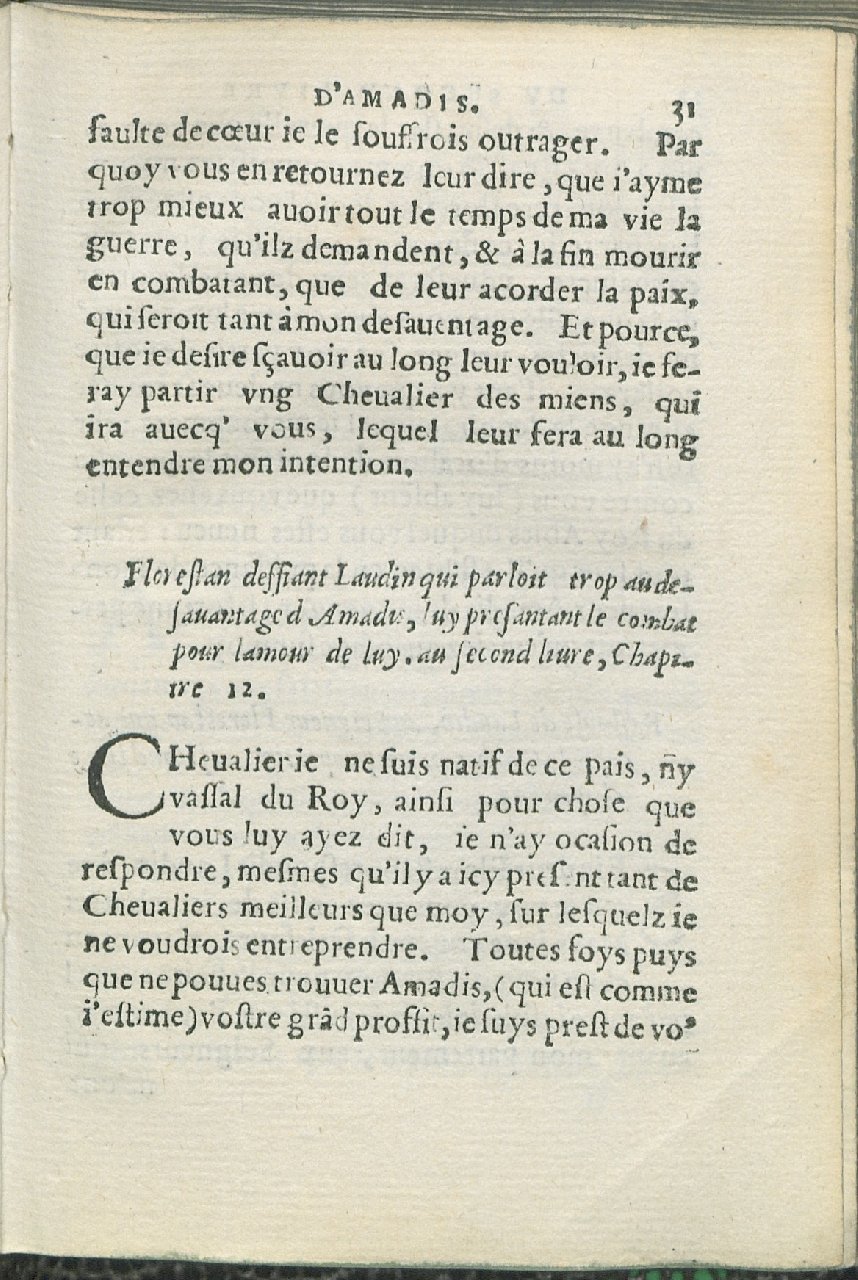 D'AMADIS. 31
faulte de cœur ie le souffrois outrager. Par
quoy vous en retournez leur dire, que i'ayme
trop mieux auoir tout le temps de ma vie la
guerre, qu'ilz demandent, & à la fin mourir
en combatant, que de leur acorder la paix,
qui seroit tant à mon desauentage. Et pource,
que ie desire sçauoir au long leur vouloir, ie fe-
ray partir vng Cheualier des miens, qui
ira auecq' vous, lequel leur fera au long
entendre mon intention.
Florestan deffiant Laudin qui parloit trop au de-
sauantage d'Amadis, luy presantant le combat
pour lamour de luy. au second liure, Chapi-
tre 12.
CHeualier ie ne suis natif de ce pais, ny
vassal du Roy, ainsi pour chose que
vous luy ayez dit, ie n'ay ocasion de
respondre, mesmes qu'il y a icy present tant de
Cheualiers meilleurs que moy, sur lesquelz ie
ne voudrois entreprendre. Toutes foys puys
que ne pouues trouuer Amadis, (qui est comme
i'estime) vostre grãd proffit, ie suys prest de vo⁹